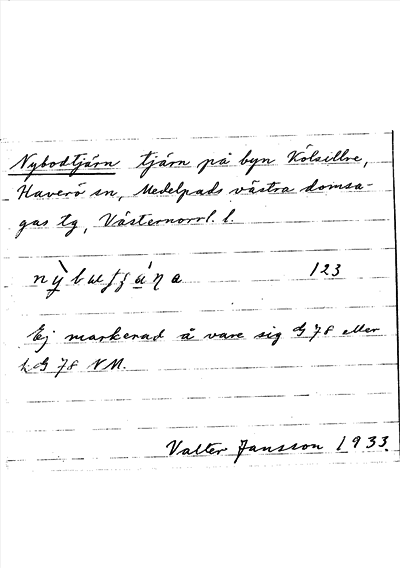 Nybodtjärn tjärn på byn Kölsillre,
Haverö sn, Medelpads västra domsa-
gas tg, Västernorrl. l.
123
Ej markerad å vare sig G 78 eller
LG 78 NM.
Valter Jansson 1933.